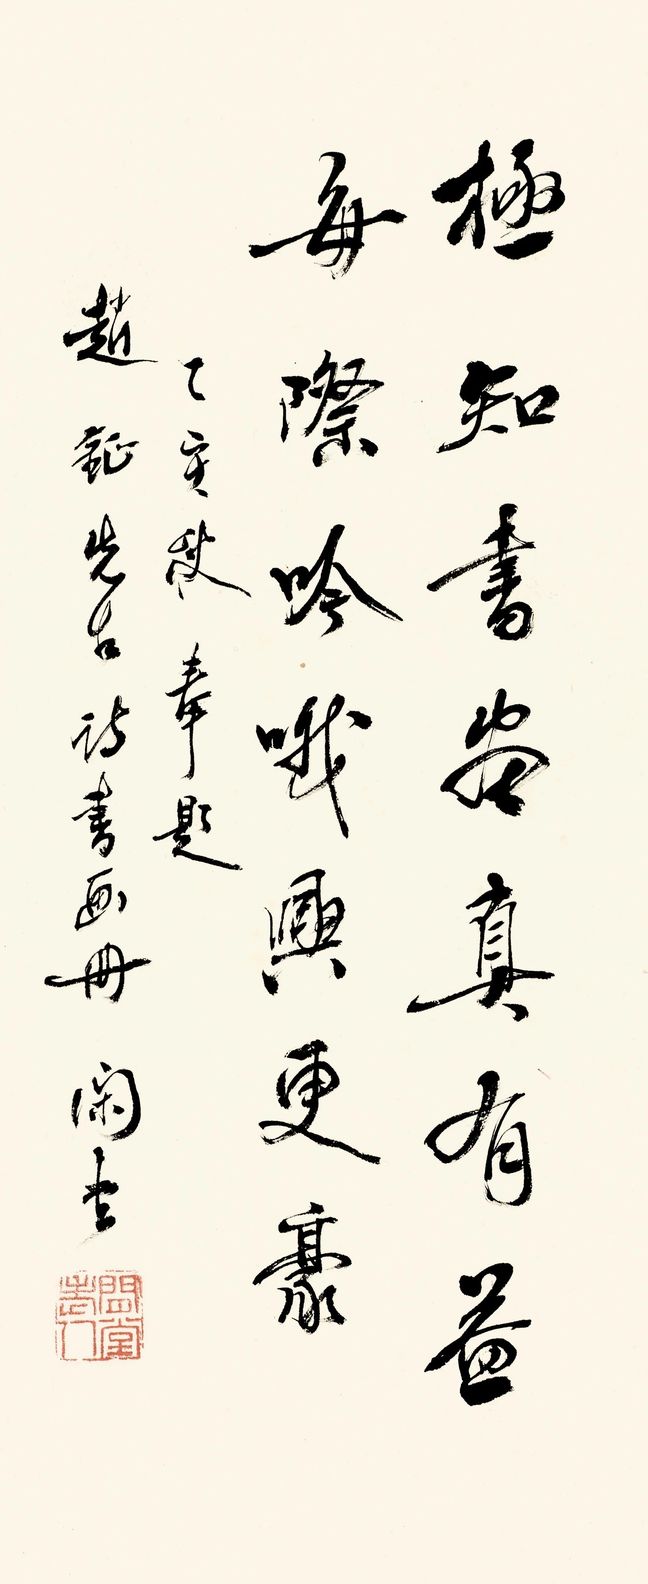 極知書卷真有益
每際吟哦興更豪
乙亥秋 奉題
趙鉦先 詩書畫冊 閑堂
閑堂老人